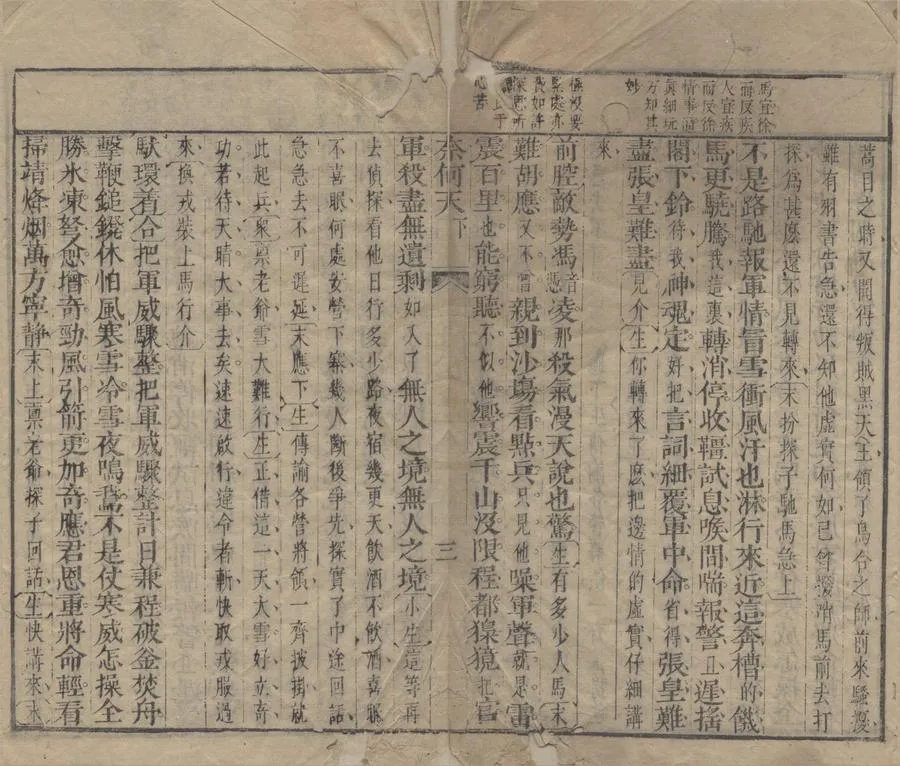 馬宜徐
而反疾
人宜疾
而反徐
情事逼
眞細玩
方知其
妙
極沒要
緊處亦
費如許
深思所
謂上于
心苦
蒿目之時又聞得叛賊黑天王領了烏合之師前來騷擾
雖有羽書告急還不知他虛實何如已曾撥哨馬前去打
探爲甚麽還不見轉來末扮探子馳馬急上
不是路馳報軍情冒雪衝風汗也淋行來近這奔槽的饑
馬更驍騰我這裏轉消停收韁試息喉間喘報警且遲搖
閣下鈴待我神魂定好把言詞細覆軍中命省得張皇難
盡張皇難盡見介生你轉來了麽把邊情的虛實仔細講
來
前腔敵勢馮音憑凌那殺氣漫天說也驚生有多少人馬末
難胡應又不曾親到沙塲看點兵只見他噪軍聲就是雷
震百里也能窮聽不似他響震千山沒限程都獉獍把官
奈何天下
三
軍殺盡無遺剩如入了無人之境無人之境小生這等再
去偵探看他日行多少路夜宿幾更天飲酒不飲酒喜賑
不喜賑何處安營下寨幾人斷後爭先探實了中途回話
急急去不可遲延末應下生傳諭各營將領一齊披掛就
此起兵衆稟老爺雪大難行生正借這一天大雪好立奇
功若待天晴大事去矣速速啟行違令者斬快取戎服過
來換戎裝上馬行介
馱環着合把軍威驟整把軍威驟整計日兼程破釜焚舟
擊鞭鎚鐙休怕風寒雪冷雪夜鳴鵞不是仗寒威怎操全
勝氷凍弩愈增奇勁風引箭更加奇應君恩重將命輕看
掃靖烽烟萬方寧靜末上稟老爺探子回話生快講來末